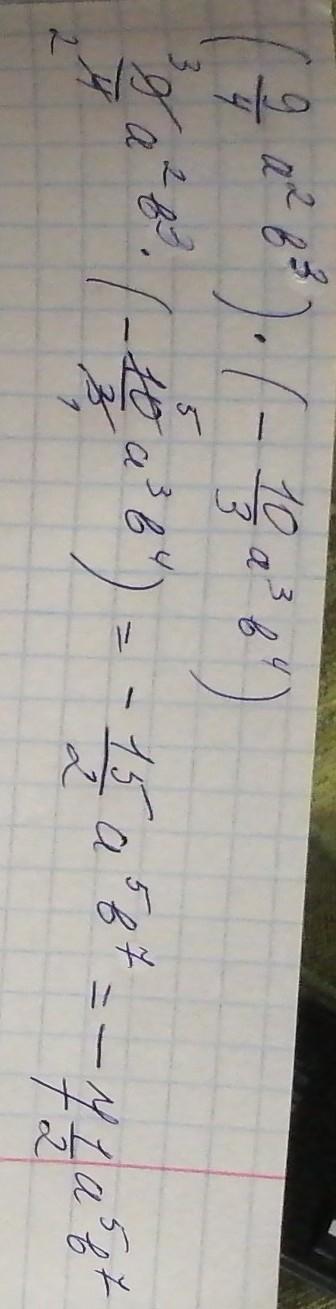 (9/4 a² b³) · (− 10/3 a³ b⁴)
³9/₂4 a² b³ · (− 10⁵/3₁ a³ b⁴) = − 15/2 a⁵ b⁷ = − 7 1/2 a⁵ b⁷